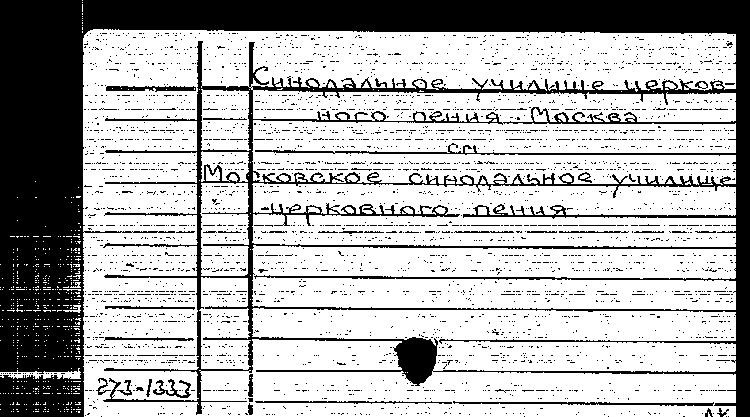 Синодальное училище церков-
ного пения. Москва
см
Московское синодальное училище
церковного пения
273-1333